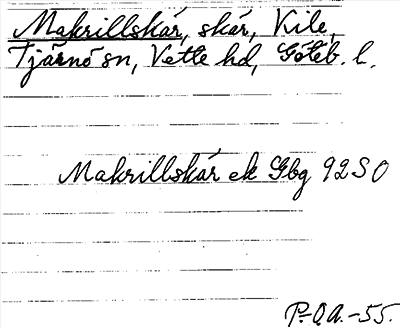 Makrillskär, skär, Kile,
Tjärnö sn, Vette hd, Göteb. l.
Makrillskär ek Gbg 92 SO
P.-O.A.-55.